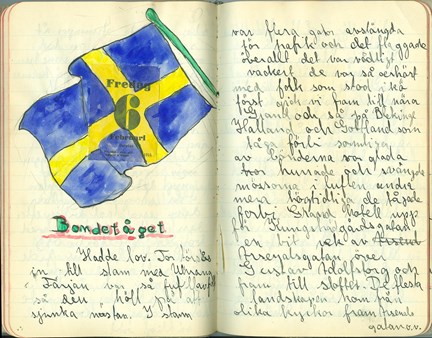 Fredag
6
Februari
Bondetåget
Hadde lov. For först
in till stan med Uhrang
Färjan var så full
så den höll på att
sjunka nästan. I stan
var flera gator avstängda
för trafik och det flaggade
överallt det var väldigt
vackert de var så oerhört
med folk som stod i kö
först gick vi fram till nära
Strand och såg på Blekinge
Halland och Gottland som
tåga förbi somliga
av bönderna var glada
hurrade och svängde
mössorna i luften andra
mera högtidliga de tågade
förbi Strand hotell upp
för Kungsträdgårdsgatan
en bit vek av
Arsenalsgatan över
Gustavs Adolfstorg och
fram till slottet. De flesta
landskapen kom från
olika kyrkor från
gatan o.v.